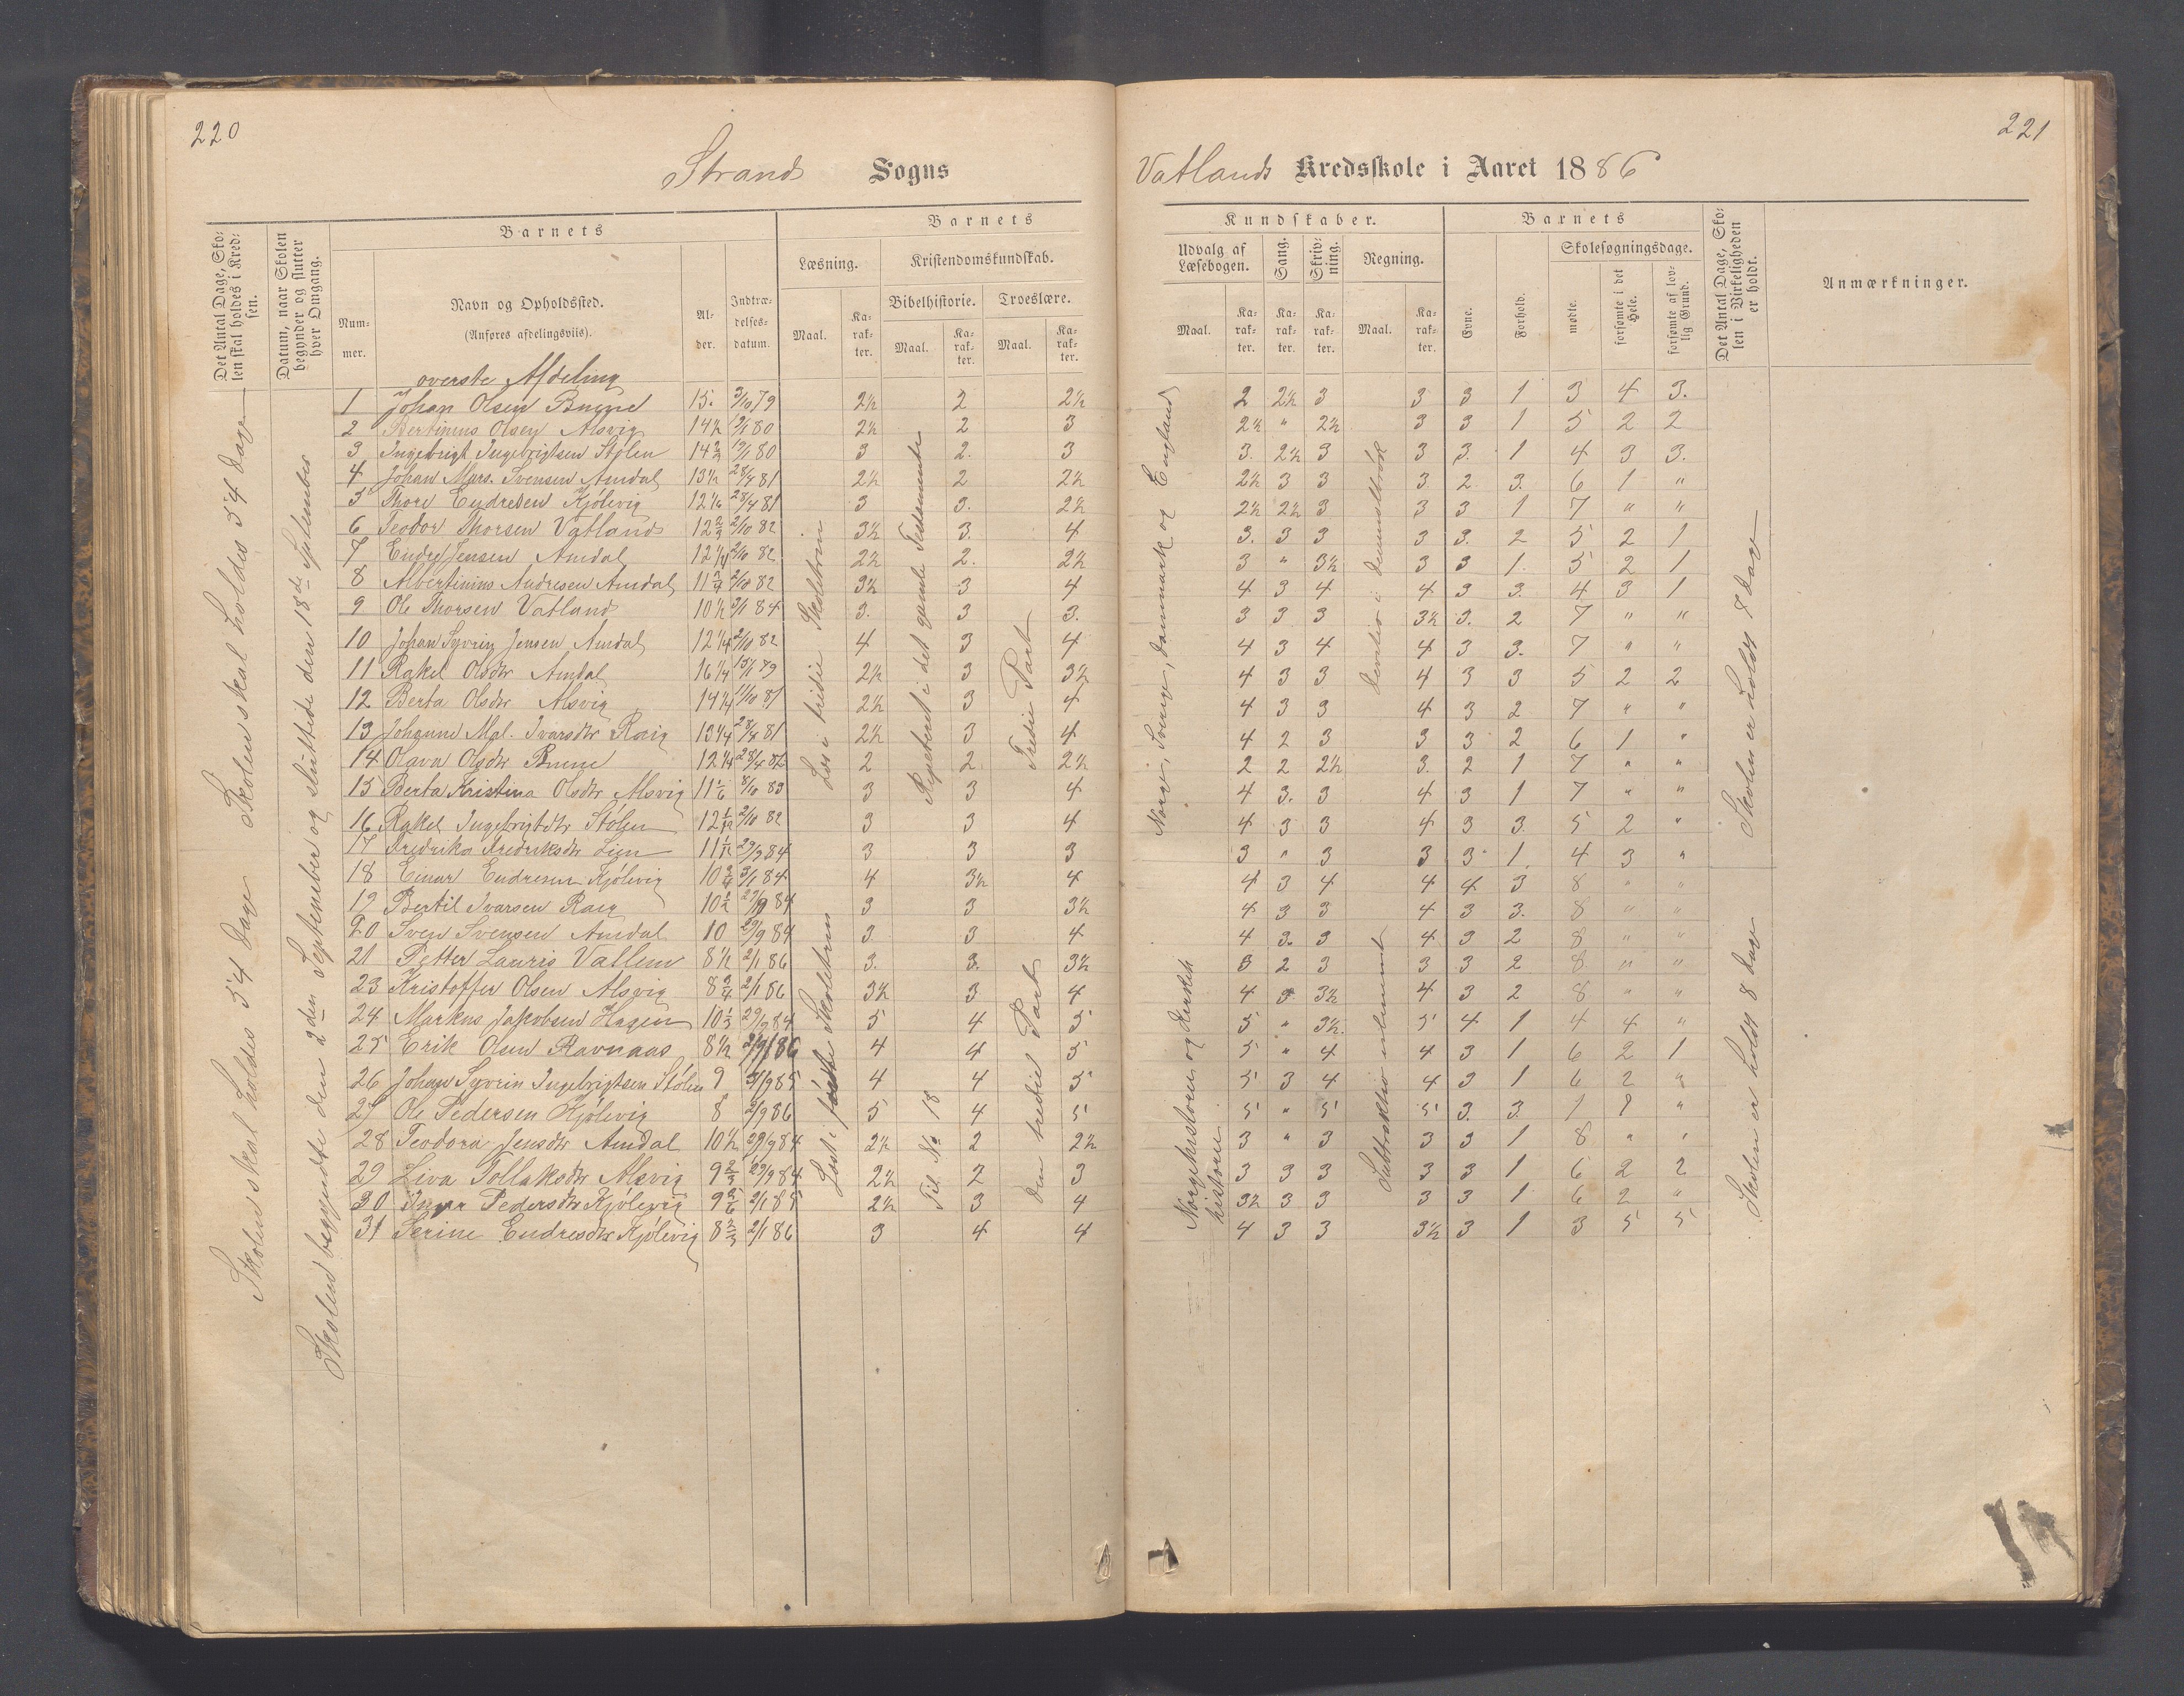 220
221
Strands Sogns
Vatlands Kredsskole i Aaret 1886
Det Antal Dage, Skolen skal holdes i Kredsen.
Datum, naar Skolen begynder og slutter hver Omgang.
Barnets
Barnets
Kundskaber.
Barnets
Nummer.
Navn og Opholdssted.
(Anføres afdelingsviis).
Alder.
Indtrædelsesdatum.
Læsning.
Kristendomskundskab.
Bibelhistorie.
Troeslære.
Maal.
Karakter.
Maal.
Karakter.
Maal.
Karakter.
Udvalg af Læsebogen.
Sang.
Skrivning.
Regning.
Maal.
Karakter.
Karakter.
Karakter.
Maal.
Karakter.
Evne.
Forhold.
Skolesøgningsdage.
mødte.
forsømte i det Hele.
forsømte af lovlig Grund.
Det Antal Dage, Skolen i Virkeligheden er holdt.
Anmærkninger.
overste Afdeling
Skolen skal holdes 54 dage
Skolen skal holdes 54 dage
Skolen begyndte den 2den September og sluttede den 18de September
Læs i tredie Skoletrin
Repeteret i det gamle Testamente
Tredie Part
Norge, Sverige, Danmark og England
Skolen er holdt 7 dage
Læst i første Skoletrin
Til No 18
den tredie Part
Norgeshistorie og Kirkehistorie
Skolen er holdt 8 dage
1 Johan Olsen Brune 15. 3/10 79 2½ 2 2½ 2 2½ 3 3 3 1 3 4 3.
2 Bertinius Olsen Alsvig 14½ 80 2½ 2 3 2½ " 2½ 3 3 1 5 2 2
3 Ingebrigt Ingebrigtsen Stølen 14⅔ 80 3 2. 3 3. 2½ 3 3 3. 1 4 3 3.
4 Johan Mars. Svensen Amdal 13½ 28/4 81 2½ 2 2½ 2½ 3 3 3. 2. 3. 6 1 "
5 Thore Endresen Kjølevig 12⅙ 28/4 81 3 3. 2½ 2½ 2½ 3 3 3 1 7 " "
6 Teodor Thorsen Vatland 12⅔ 2/10 82 3½ 3. 4 3. 3 3 3 3. 2 5 2 1
7 Endre Jensen Amdal 12¼ 2/10 82 2½ 2. 2½ 3 " 3½ 3 3 1. 5 2 1
8 Albertinius Andresen Amdal 11¾ 2/10 82 3½ 3 4 4 3 4 4 3 3. 4 3 1
9 Ole Thorsen Vatland 10½ 3/1 84 3. 3 3. 3 3 3 3½ 3. 2 7 " "
10 Johan Syvrin Jensen Amdal 12¼ 2/10 82 4 3 4 4 3 4 4 3 3. 7 " "
11 Rakel Olsdtr Amdal 16¼ 79 2½ 3 3½ 4 3 3 4 3 3 5 2 2
12 Berta Olsdtr Alsvig 14¼ 11/10 81 2½ 3 4 4 3 3 4 3 2 7 " "
13 Johanne Mal. Ivarsdtr 13¼ 28/4 81 2½ 3 4 4 2 3 3 3 2 6 1 "
14 Olava Olsdtr Brune 12¼ 28/4 82 2 2 2½ 2 2 2½ 3. 2 1 7 " "
15 Berta Kristina Olsdtr Alsvig 11⅙ 8/10 83 3 3 4 4 3. 3 4 3 1 7 " "
16 Rakel Ingebrigtdtr Stølen 2/10 82 3 3 4 4 3 3 4 3 3. 5 2 "
17 Fredrika Fredriksdtr Lien 29/9 84 3 3 3 3 " 3 3 3 1 4 3 "
18 Einar Endresen Kjølevig 10¾ 3/1 84 4 3½ 4 4 3 4 4 4 3 8 " "
19 Bertil Ivarsen 10½ 29/9 84 3 3 3½ 4 3 3 4 3 3. 8 " "
20 Sven Svensen Amdal 10 29/9 84 3. 3 4 4 3. 3 4 3 2 8 " "
21 Petter Lauris Vatland 8½ 2/1 86 3. 3. 3½ 3 2 3 3 3 2 8 " "
23 Kristoffer Olsen Alsvig 8¾ 2/1 86 3½ 3 4 4 3 3½ 4 3 2 8 " "
24 Markus Jakobsen Hagen 10⅓ 29/9 84 5 4 5 5 " 3½ 5 4 1 4 4 "
25 Erik Olsen Ravnaas 8½ 86 4 4 5 5 " 4 4 3 1 6 2 1
26 Johan Syvrin Ingebrigtsen Stølen 9 85 4 4 5 5 3 4 4 3 1 6 2 "
27 Ole Pedersen Kjølevig 8 2/9 86 5 4 5 5 " 5 5 3. 3. 1 7 "
28 Teodora Jensdtr Amdal 10½ 29/9 84 2½ 2 2½ 3 " 3 3 3 1 8 " "
29 Liva Tollaksdtr Alsvig 9⅔ 29/9 84 2½ 2 3 3 3 3 3 3 1 6 2 2
30 Pedersdtr Kjølevig 2/1 85 2½ 3 4 3½ 3 3 3 3 1 6 2 "
31 Serine Endresdtr Kjølevig 8⅔ 2/1 86 3 4 4 4 3 3 3½ 3 1 3 5 5